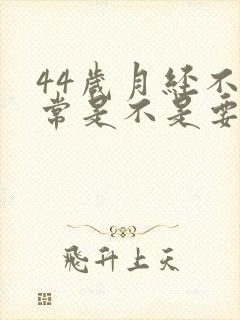 44岁月经不
常是不是要
飛升上天